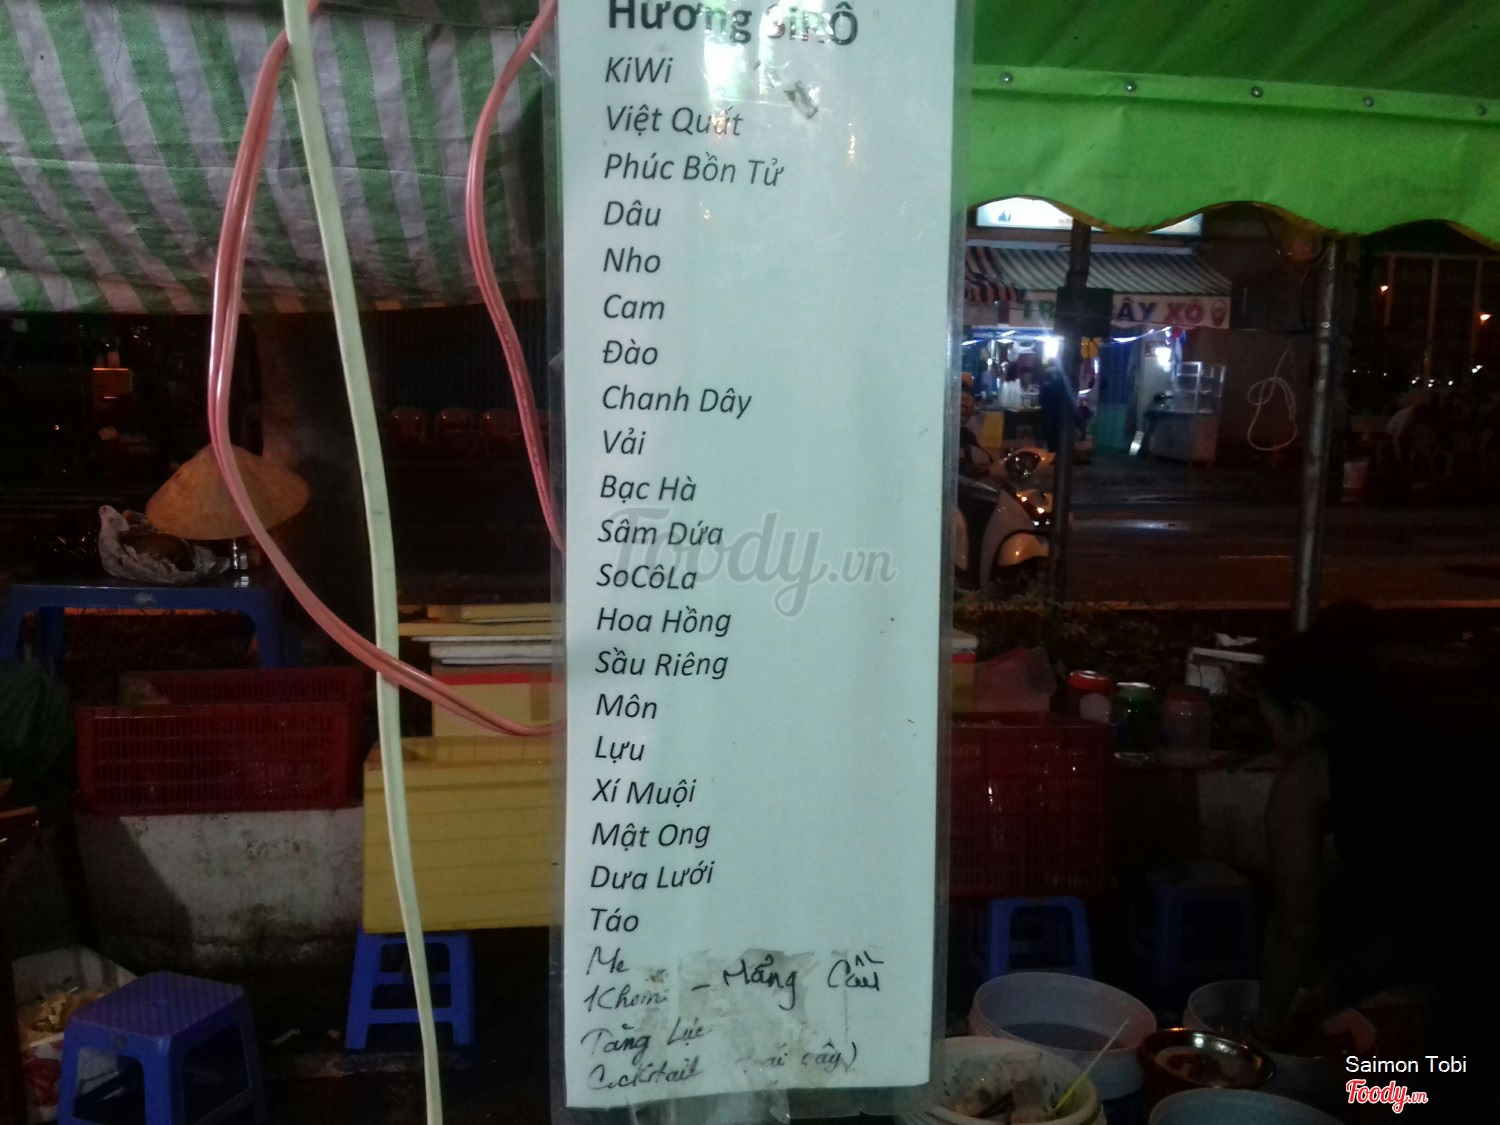 Hương SiRÔ
KiWi
Việt Quất
Phúc Bồn Tử
Dâu
Nho
Cam
Đào
Chanh Dây
Vải
Bạc Hà
Sâm Dứa
SoCôLa
Hoa Hồng
Sầu Riêng
Môn
Lựu
Xí Muội
Mật Ong
Dưa Lưới
Táo
Me
Khóm - Mảng Cầu
Tăng Lực
Cocktail cây)
Foody.vn
CÂY XÔ
Saimon Tobi
Foody.vn